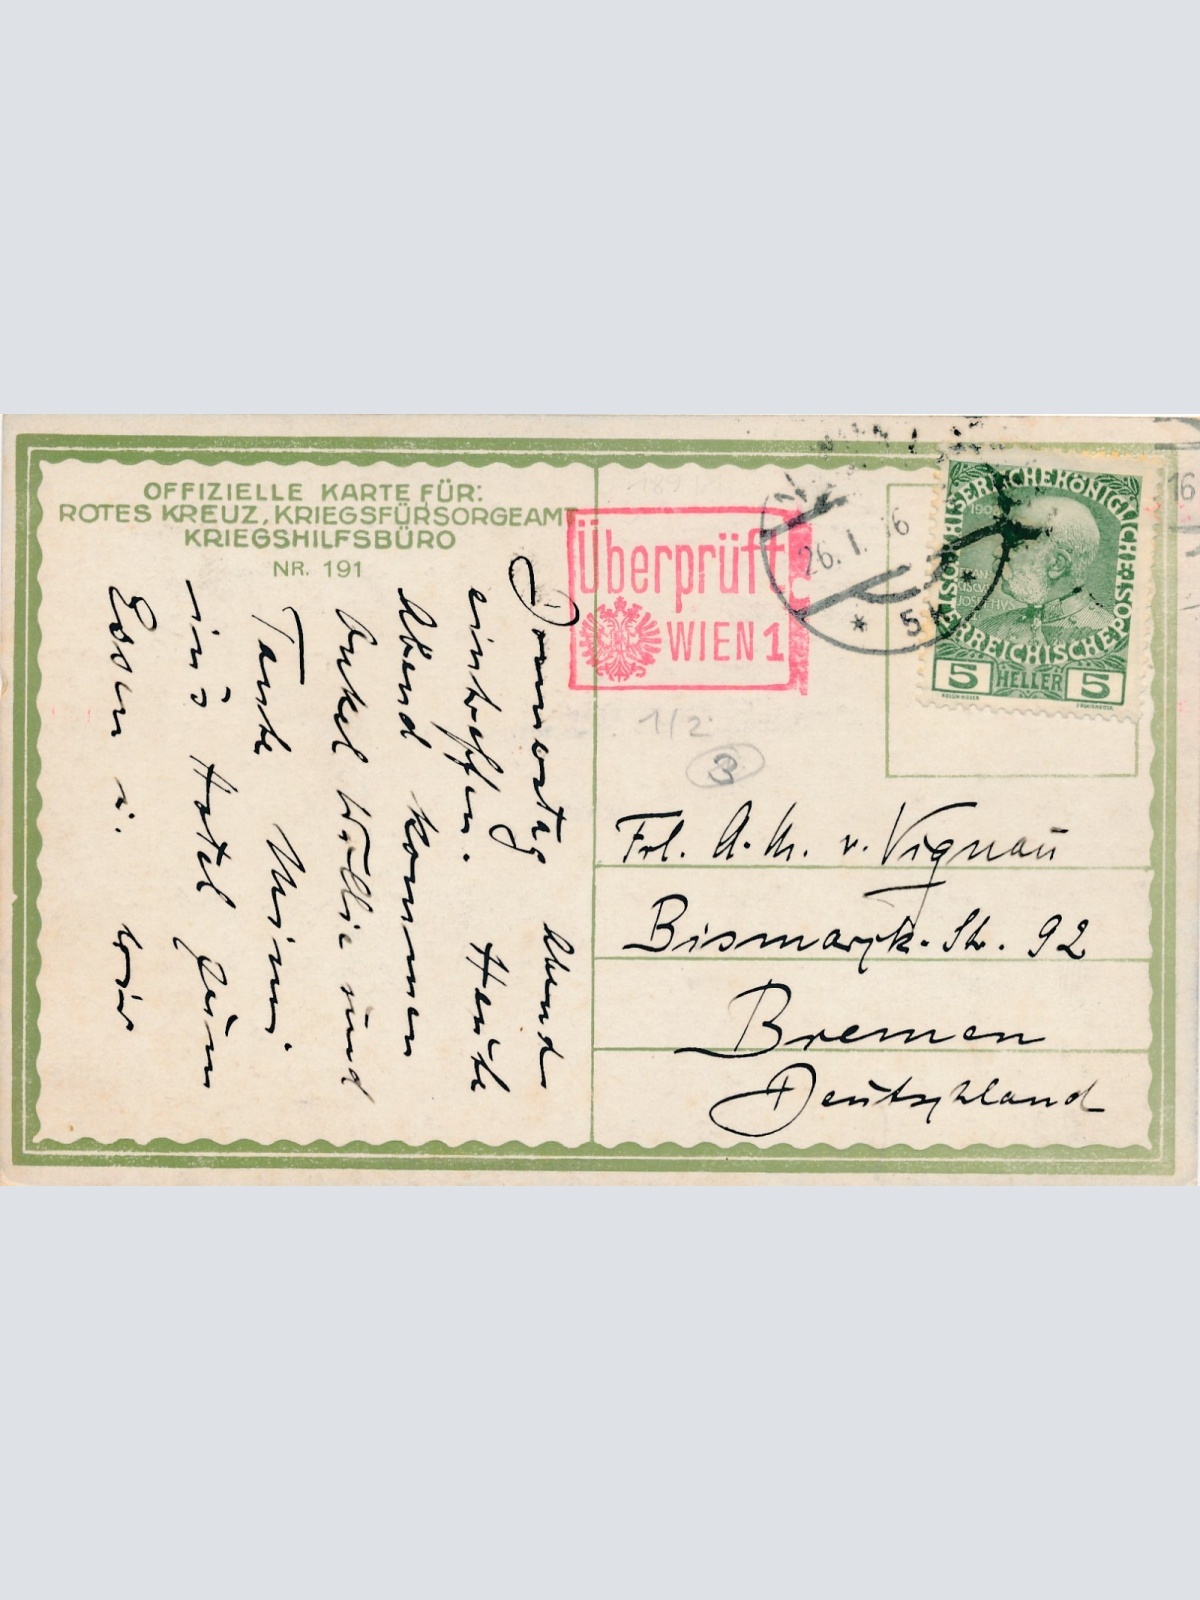 OFFIZIELLE KARTE FÜR:
ROTES KREUZ, KRIEGSFÜRSORGEAMT
KRIEGSHILFSBÜRO
NR. 191
Überprüft
WIEN 1
26. I. 16
* 5
KAISERLICHE KÖNIGLICHE
ÖSTERREICHISCHE POST
1908
5 HELLER 5
16
1/2
3
Donnerstag Abend
eintreffen. Heute
Abend kommen
Onkel Willie und
Tante Mimi
ins Hotel zum
Essen u. wir
Frl. A. M. v. Vignau
Bismarck-Str. 92
Bremen
Deutschland